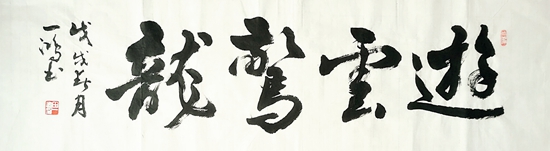 遊雲驚龍
戊戌春月
一鴻書